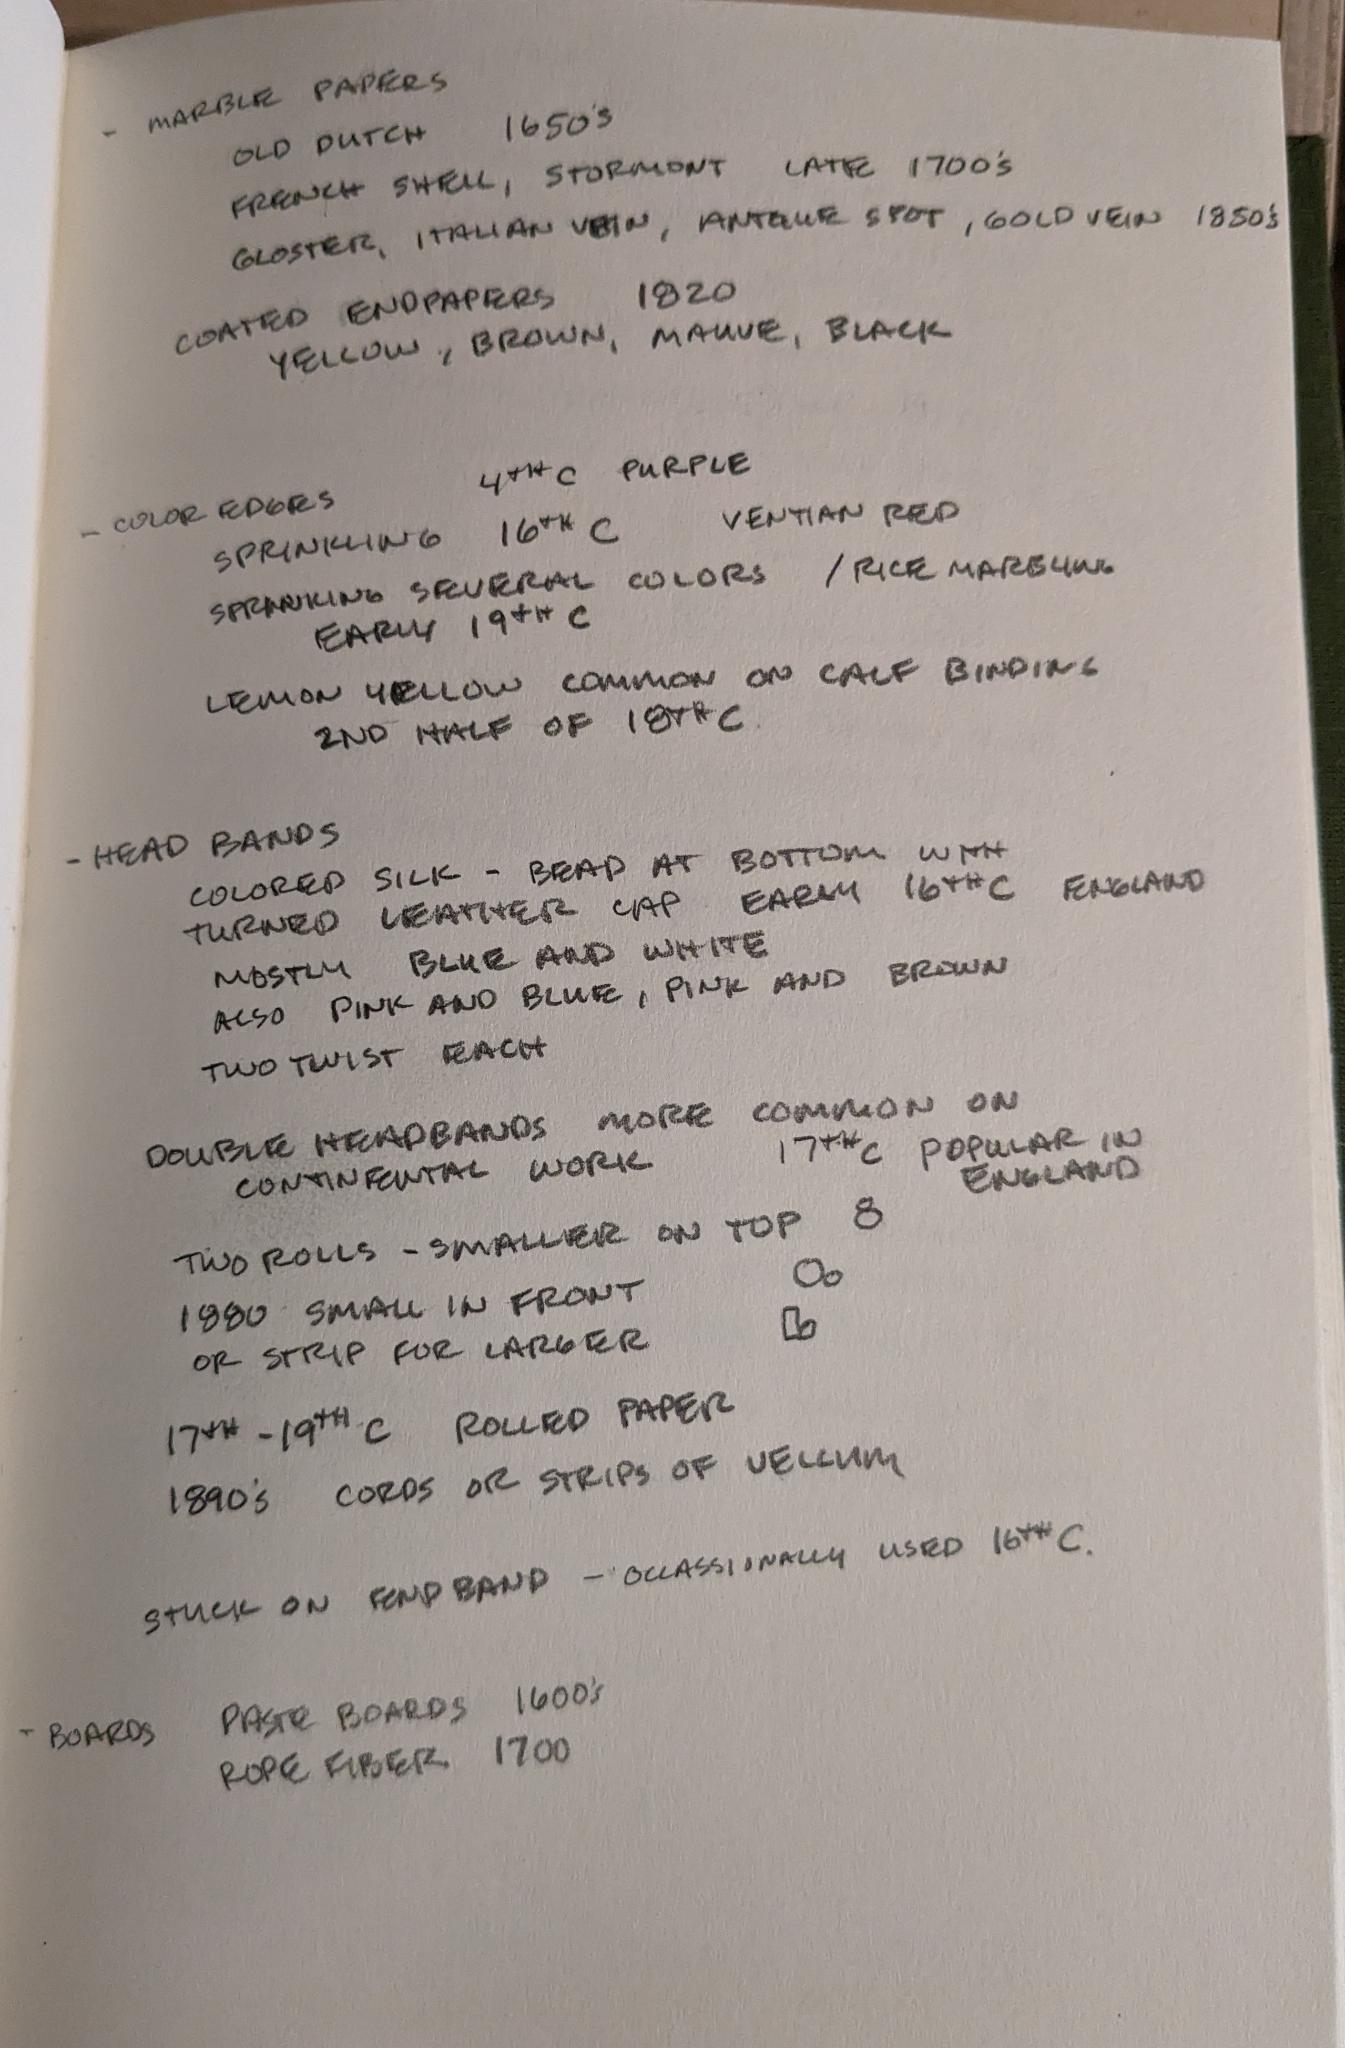 - MARBLE PAPERS
OLD DUTCH 1650's
FRENCH SHELL, STORMONT LATE 1700's
GLOSTER, ITALIAN VEIN, ANTIQUE SPOT, GOLD VEIN 1850's
COATED ENDPAPERS 1820
YELLOW, BROWN, MAUVE, BLACK
- COLOR EDGES 4TH C PURPLE
SPRINKLING 16TH C VENTIAN RED
SPRINKING SEVERAL COLORS / RICE MARBLING
EARLY 19TH C
LEMON YELLOW COMMON ON CALF BINDING
2ND HALF OF 18TH C.
- HEAD BANDS
COLORED SILK - BEAD AT BOTTOM WITH
TURNED LEATHER CAP EARLY 16TH C ENGLAND
MOSTLY BLUE AND WHITE
ALSO PINK AND BLUE, PINK AND BROWN
TWO TWIST EACH
DOUBLE HEADBANDS MORE COMMON ON
CONTINENTAL WORK 17TH C POPULAR IN
ENGLAND
TWO ROLLS - SMALLER ON TOP 8
1880 SMALL IN FRONT
OR STRIP FOR LARGER
17TH - 19TH C ROLLED PAPER
1890's CORDS OR STRIPS OF VELLUM
STUCK ON ENDBAND - OCCASSIONALLY USED 16TH C.
- BOARDS PASTE BOARDS 1600's
ROPE FIBER 1700